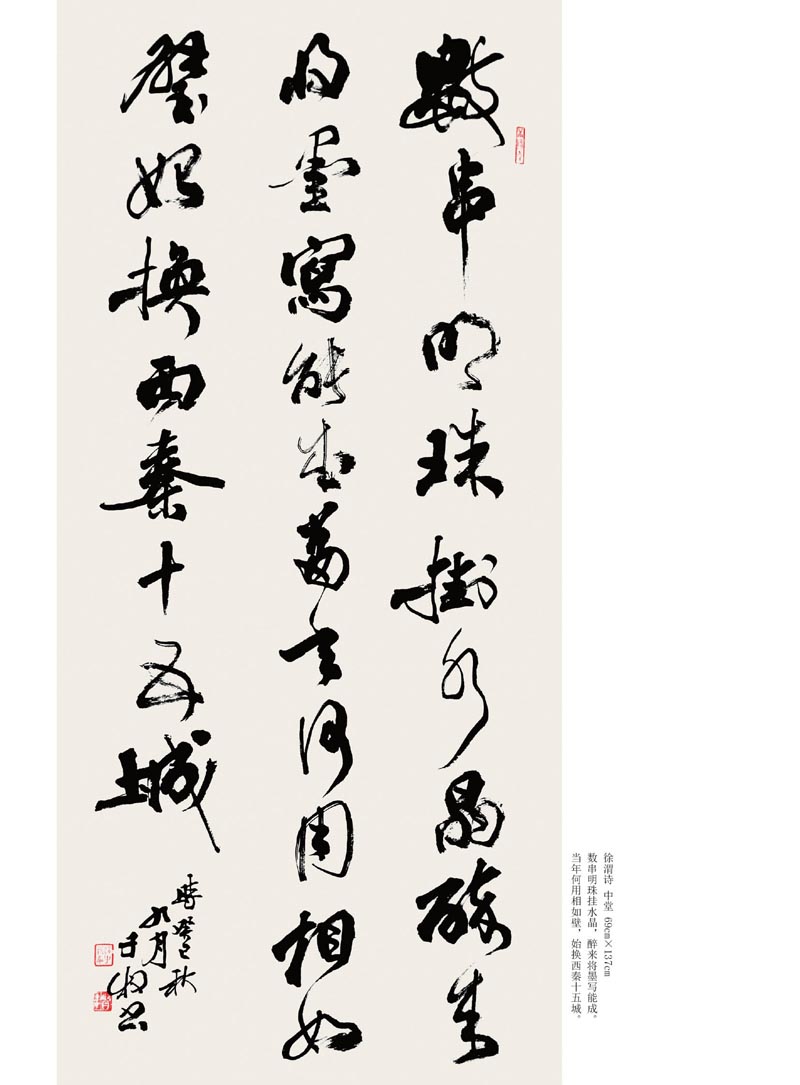 數串明珠掛水晶醉來
将墨寫能成當年何用相如
璧始換西秦十五城
時癸巳秋
九月
徐渭诗 中堂 69cm×137cm
数串明珠挂水晶，醉来将墨写能成。
当年何用相如壁，始换西秦十五城。